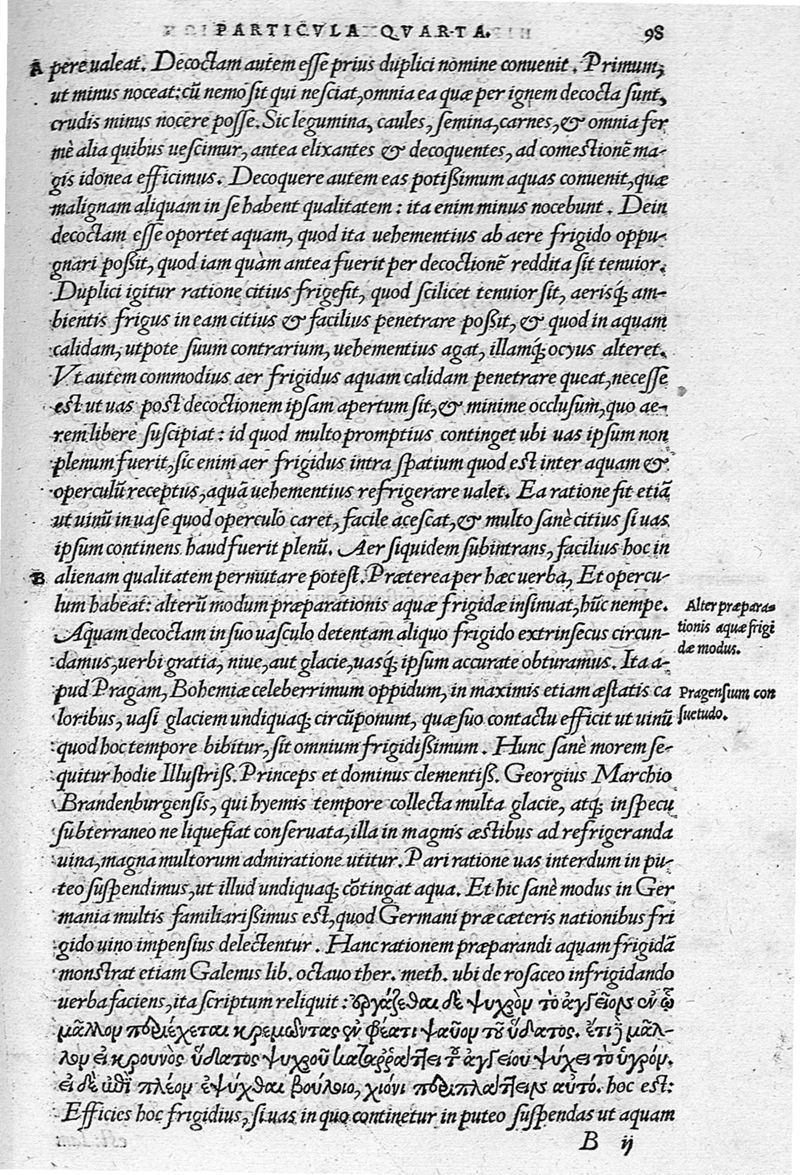 PARTICVLA QVARTA. 98
A pere ualeat. Decoctam autem esse prius duplici nomine conuenit. Primum,
ut minus noceat: cũ nemo sit qui nesciat, omnia ea quæ per ignem decocta sunt,
crudis minus nocere posse. Sic legumina, caules, semina, carnes, & omnia fer
mè alia quibus uescimur, antea elixantes & decoquentes, ad comestionẽ ma-
gis idonea efficimus. Decoquere autem eas potißimum aquas conuenit, quæ
malignam aliquam in se habent qualitatem: ita enim minus nocebunt. Dein
decoctam esse oportet aquam, quod ita uehementius ab aere frigido oppu-
gnari poßit, quod iam quàm antea fuerit per decoctionẽ reddita sit tenuior.
Duplici igitur ratione citius frigefit, quod scilicet tenuior sit, aerisq́; am-
bientis frigus in eam citius & facilius penetrare poßit, & quod in aquam
calidam, utpote suum contrarium, uehementius agat, illamq́; ocyus alteret.
Vt autem commodius aer frigidus aquam calidam penetrare queat, necesse
est ut uas post decoctionem ipsam apertum sit, & minime occlusum, quo ae-
rem libere suscipiat: id quod multo promptius continget ubi uas ipsum non
plenum fuerit, sic enim aer frigidus intra spatium quod est inter aquam &
operculũ receptus, aquã uehementius refrigerare ualet. Ea ratione fit etiã
ut uinũ in uase quod operculo caret, facile acescat, & multo sanè citius si uas
ipsum continens haud fuerit plenũ. Aer siquidem subintrans, facilius hoc in
B alienam qualitatem permutare potest. Præterea per hæc uerba, Et opercu-
lum habeat: alterũ modum præparationis aquæ frigidæ insinuat, hũc nempe.
Alter præpara-
tionis aquæ frigi
dæ modus.
Aquam decoctam in suo uasculo detentam aliquo frigido extrinsecus circun-
damus, uerbi gratia, niue, aut glacie, uasq́; ipsum accurate obturamus. Ita a-
pud Pragam, Bohemiæ celeberrimum oppidum, in maximis etiam æstatis ca
Pragensium con
suetudo.
loribus, uasi glaciem undiquaq; circũponunt, quæ suo contactu efficit ut uinũ
quod hoc tempore bibitur, sit omnium frigidißimum. Hunc sanè morem se-
quitur hodie Illustriß. Princeps et dominus clementiß. Georgius Marchio
Brandenburgensis, qui hyemis tempore collecta multa glacie, atq; in specu
subterraneo ne liquefiat conseruata, illa in magnis æstibus ad refrigeranda
uina, magna multorum admiratione utitur. Pari ratione uas interdum in pu-
teo suspendimus, ut illud undiquaq; cõtingat aqua. Et hic sanè modus in Ger
mania multis familiarißimus est, quod Germani præ cæteris nationibus fri
gido uino impensius delectentur. Hanc rationem præparandi aquam frigidã
monstrat etiam Galenus lib. octauo ther. meth. ubi de rosaceo infrigidando
uerba faciens, ita scriptum reliquit: ἐργάζεσθαι δὲ ψυχρὸν τὸ ἀγγεῖον ἐν ᾧ
μᾶλλον περιέχεται κρεμῶντας ἐν φρέατι ψαῦον τοῦ ὕδατος. ἔτι ἢ μᾶλ-
λον εἰ κρουνὸς ὕδατος ψυχροῦ τοῦ ἀγγείου ψύχει τὸ ὑγρόν.
εἰ δὲ πλέον ἐψύχθαι βούλοιο, χιόνι περιπλάττεις αὐτό. hoc est:
Efficies hoc frigidius, si uas in quo continetur in puteo suspendas ut aquam
B ij